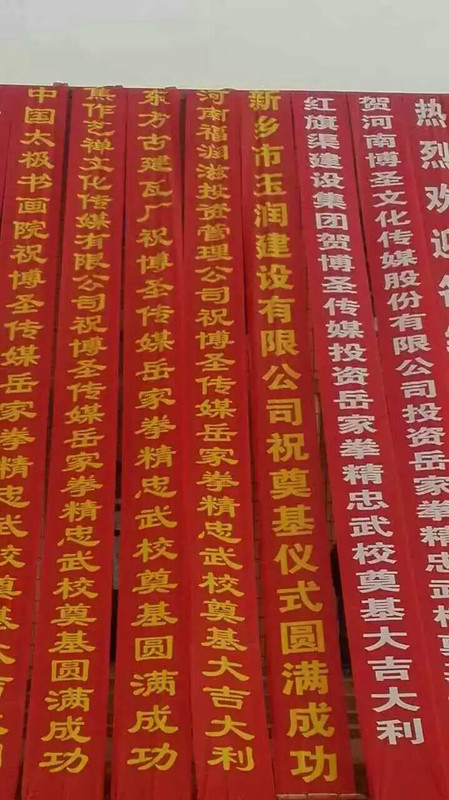 热烈欢迎
贺河南博圣文化传媒股份有限公司投资岳家拳精忠武校奠
红旗渠建设集团贺博圣传媒投资岳家拳精忠武校奠基大吉大利
新乡市玉润建设有限公司祝奠基仪式圆满成功
河南福润滋投资管理公司祝博圣传媒岳家拳精忠武校奠基大吉大利
东方古建瓦厂祝博圣传媒岳家拳精忠武校奠基圆满成功
焦作艺禅文化传媒有限公司祝博圣传媒岳家拳精忠武校奠基圆满成功
中国太极书画院祝博圣传媒岳家拳精忠武校奠基大吉大利